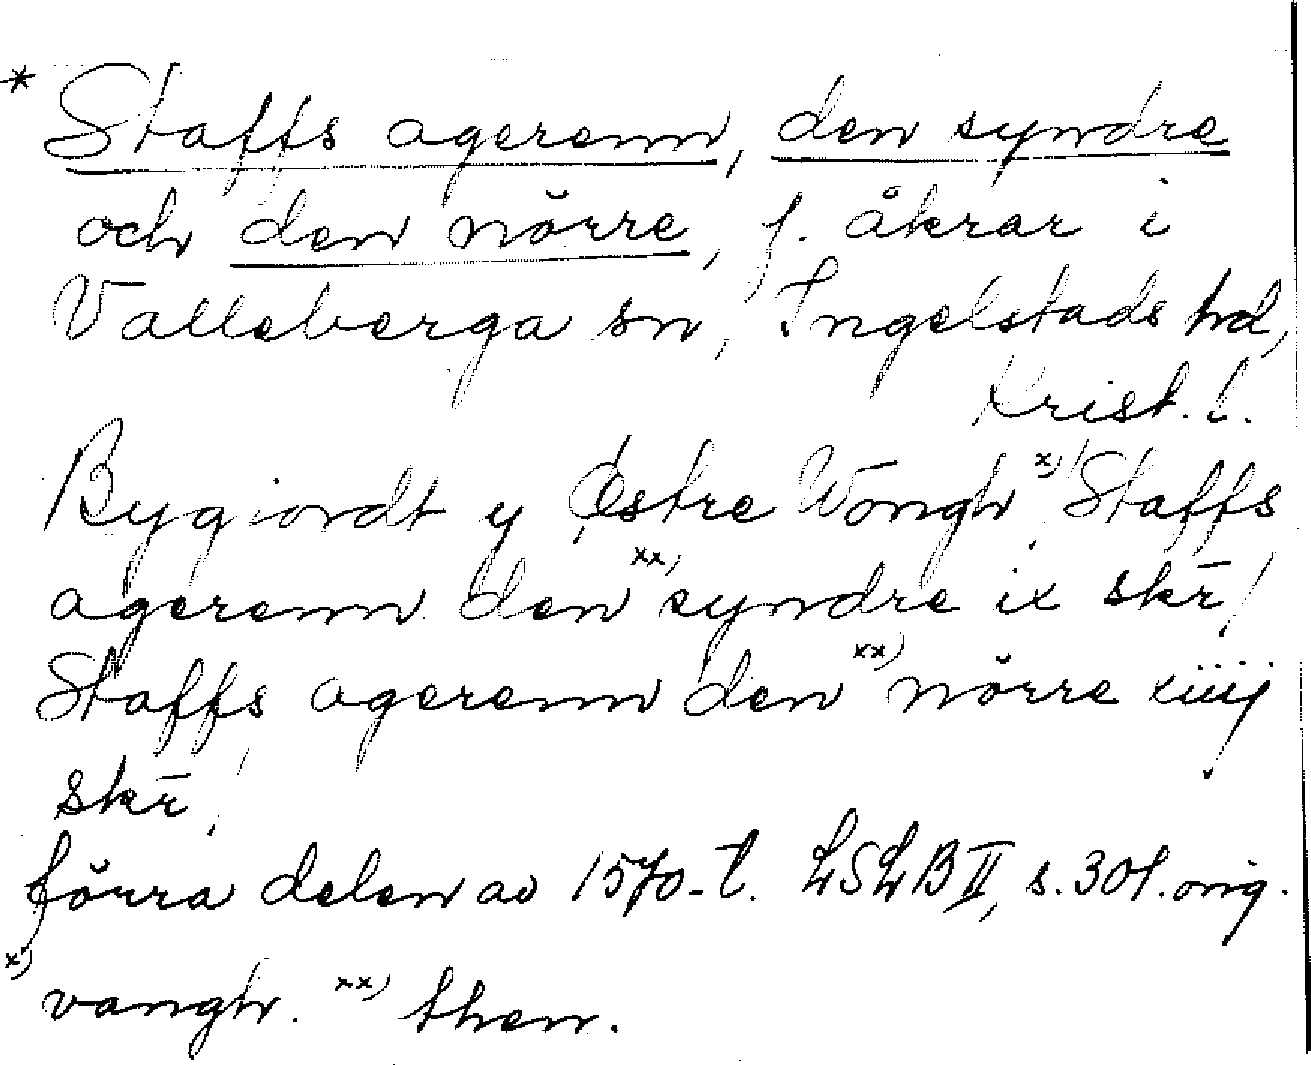 * Staffs agerenn, den syndre
och den nörre, f. åkrar i
Valleberga sn, Ingelstads hd,
Krist. l.
Bygiordt y Østre Wongh x) / Staffs
agerenn den xx) syndre ix skr̄ /
Staffs agerenn den xx) nörre xiiij
skr̄ /
förra delen av 1570-t. LSLB II, s. 301. orig.
x) vangh. xx) then.